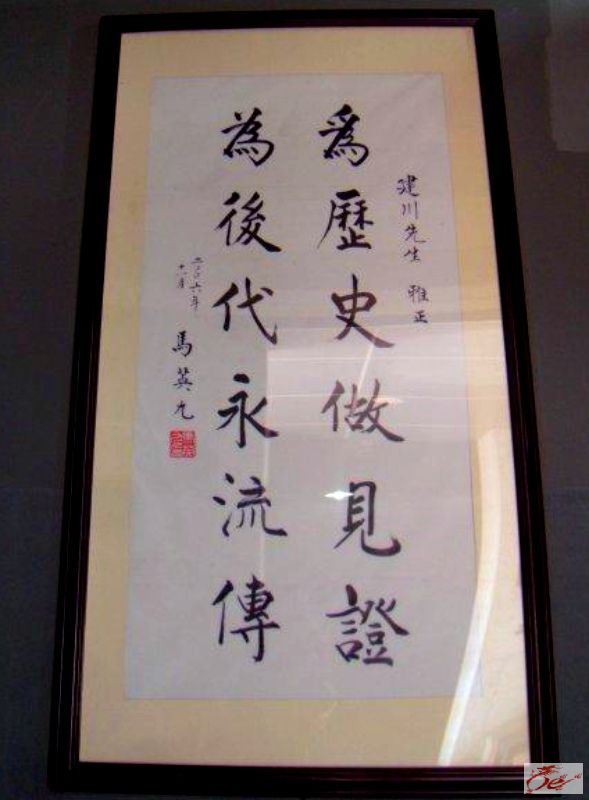 建川先生 雅正
為歷史做見證
為後代永流傳
二〇〇六年
馬英九